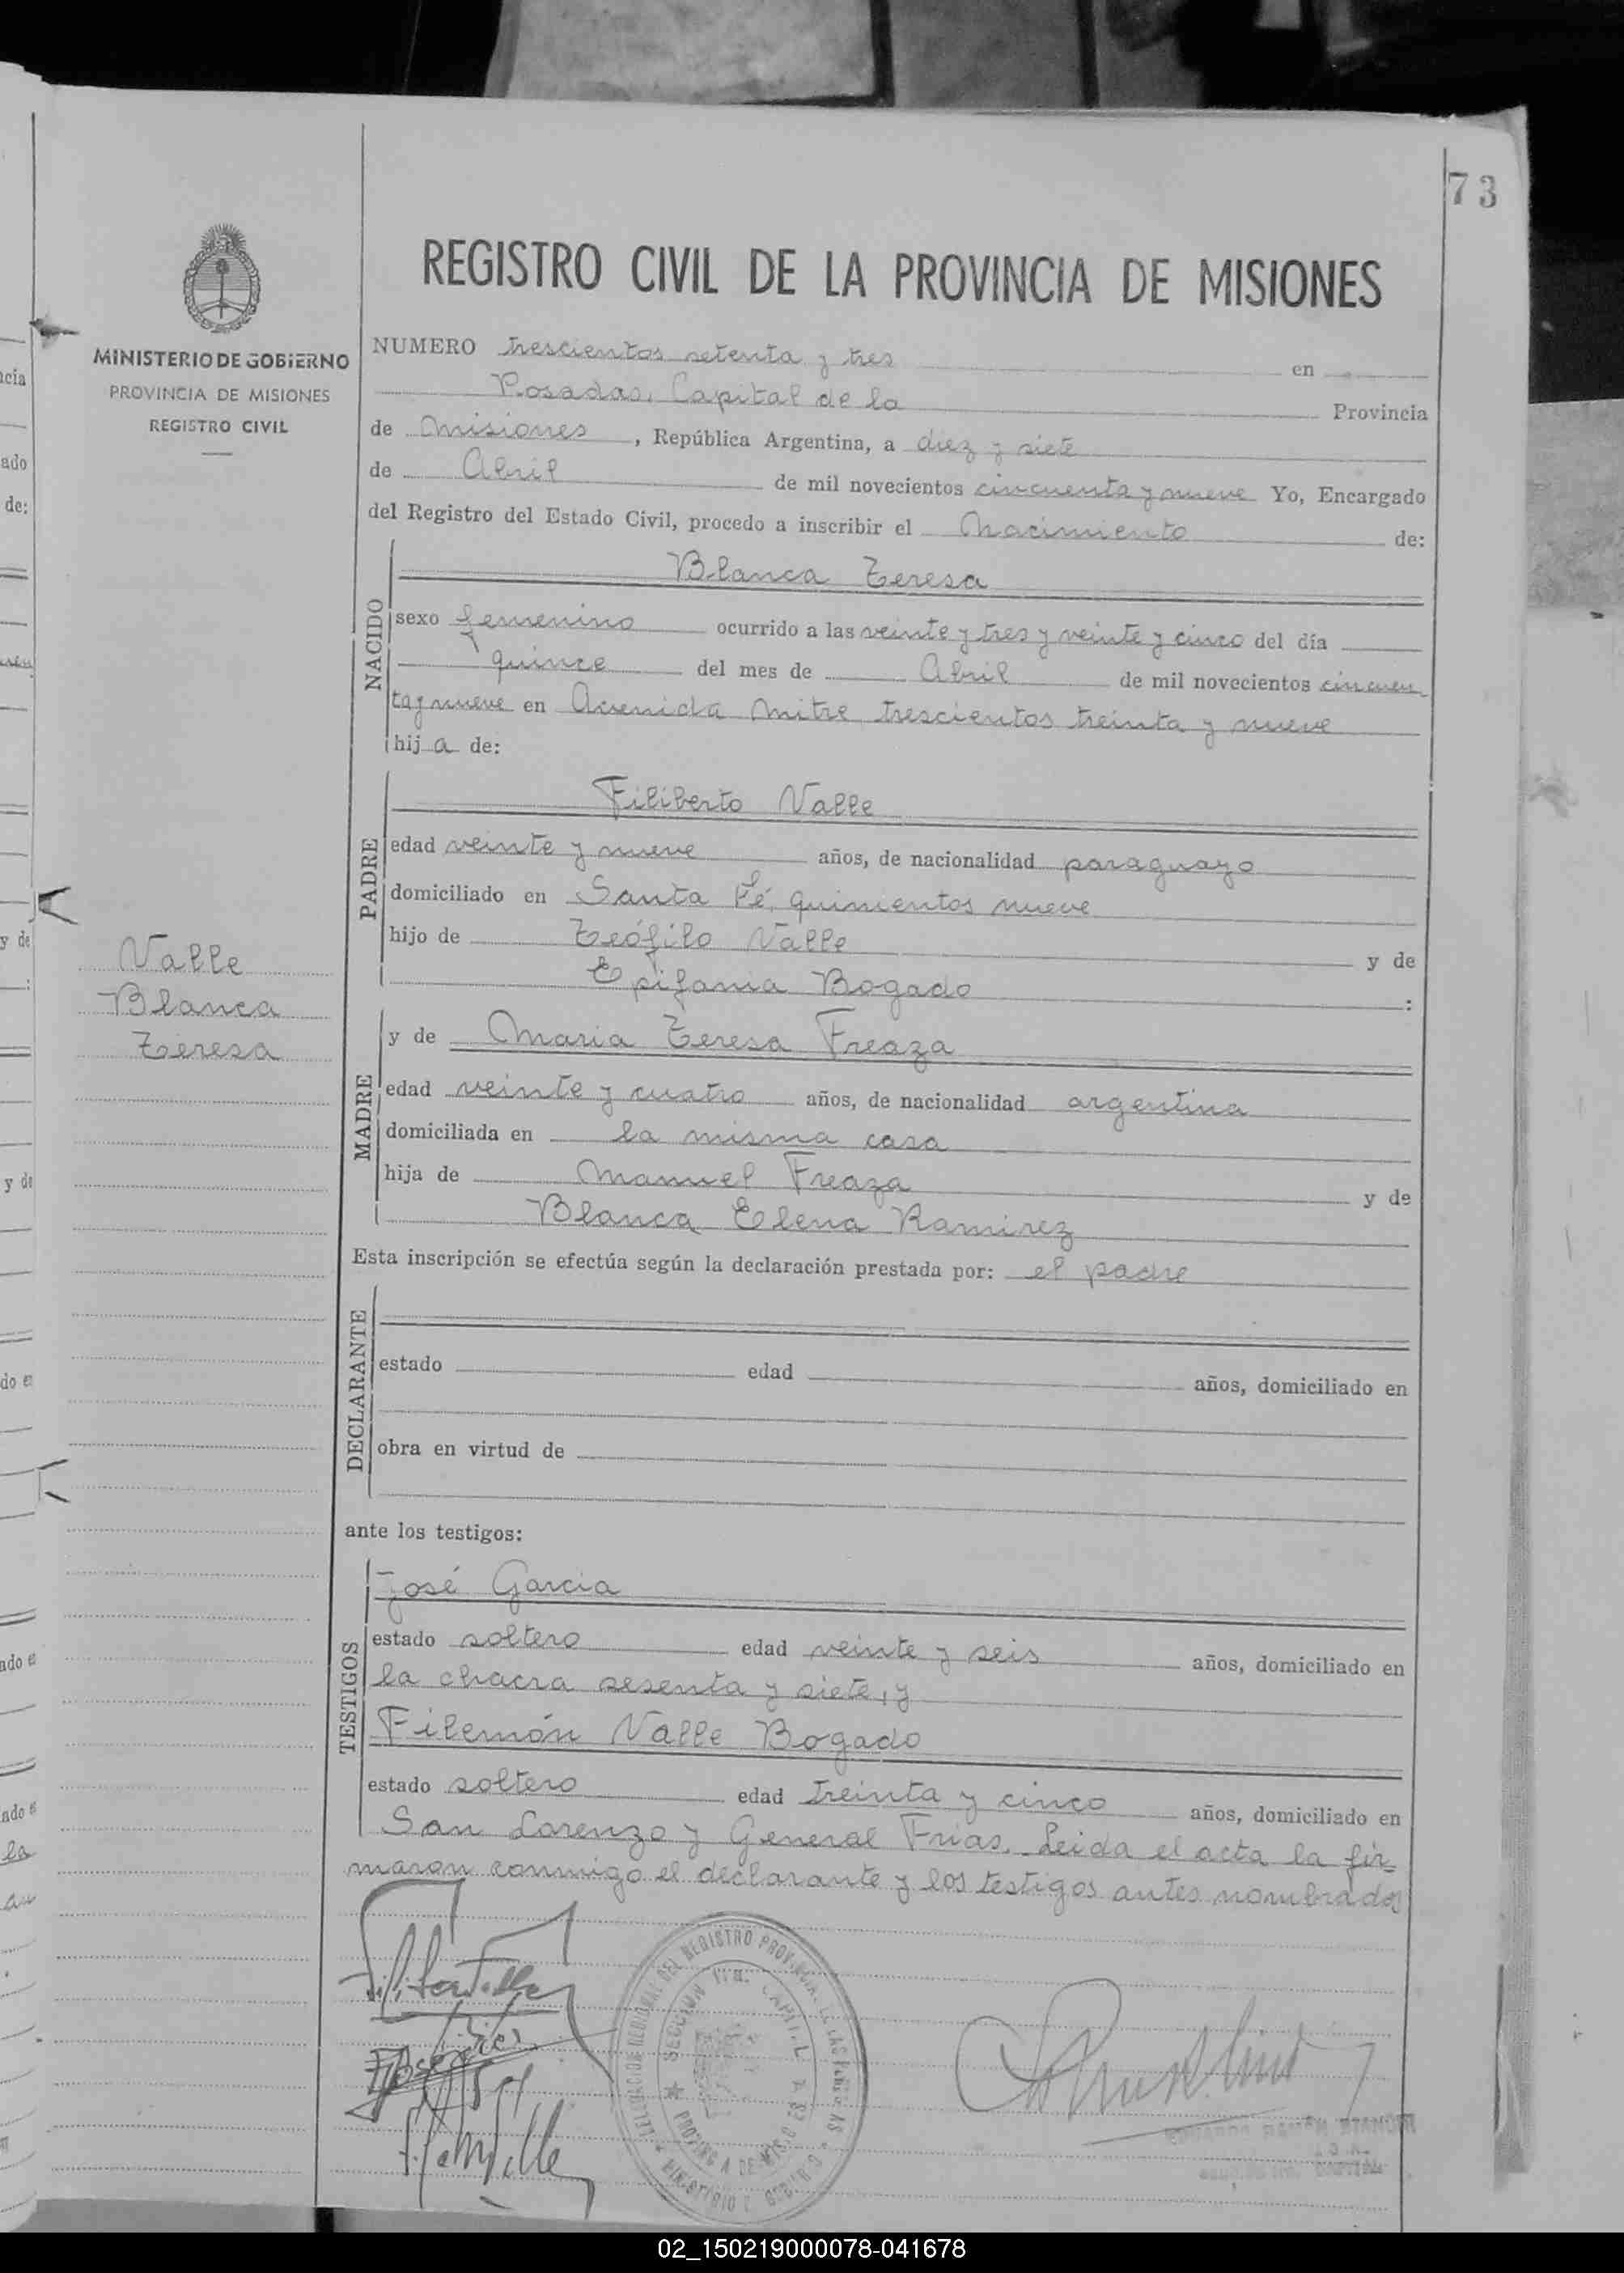 73
REGISTRO CIVIL DE LA PROVINCIA DE MISIONES
MINISTERIO DE GOBIERNO
PROVINCIA DE MISIONES
REGISTRO CIVIL
NUMERO trescientos setenta y tres en
Posadas, Capital de la Provincia
de Misiones, República Argentina, a diez y siete
de Abril de mil novecientos cincuenta y nueve Yo, Encargado
del Registro del Estado Civil, procedo a inscribir el Nacimiento de:
NACIDO
Blanca Teresa
sexo femenino ocurrido a las veinte y tres y veinte y cinco del día
quince del mes de Abril de mil novecientos cincuen
ta y nueve en Avenida Mitre trescientos treinta y nueve
hij a de:
PADRE
Filiberto Valle
edad veinte y nueve años, de nacionalidad paraguayo
domiciliado en Santa Fé, quinientos nueve
hijo de Teófilo Valle y de
Epifania Bogado :
Valle
Blanca
Teresa
MADRE
y de Maria Teresa Freaza
edad veinte y cuatro años, de nacionalidad argentina
domiciliada en la misma casa
hija de Manuel Freaza y de
Blanca Elena Ramirez
Esta inscripción se efectúa según la declaración prestada por: el padre
DECLARANTE
estado edad años, domiciliado en
obra en virtud de
ante los testigos:
TESTIGOS
José Garcia
estado soltero edad veinte y seis años, domiciliado en
la chacra sesenta y siete, y
Filemón Valle Bogado
estado soltero edad treinta y cinco años, domiciliado en
San Lorenzo y General Frias. Leida el acta la fir=
maron conmigo el declarante y los testigos antes nombrados
02_150219000078-041678